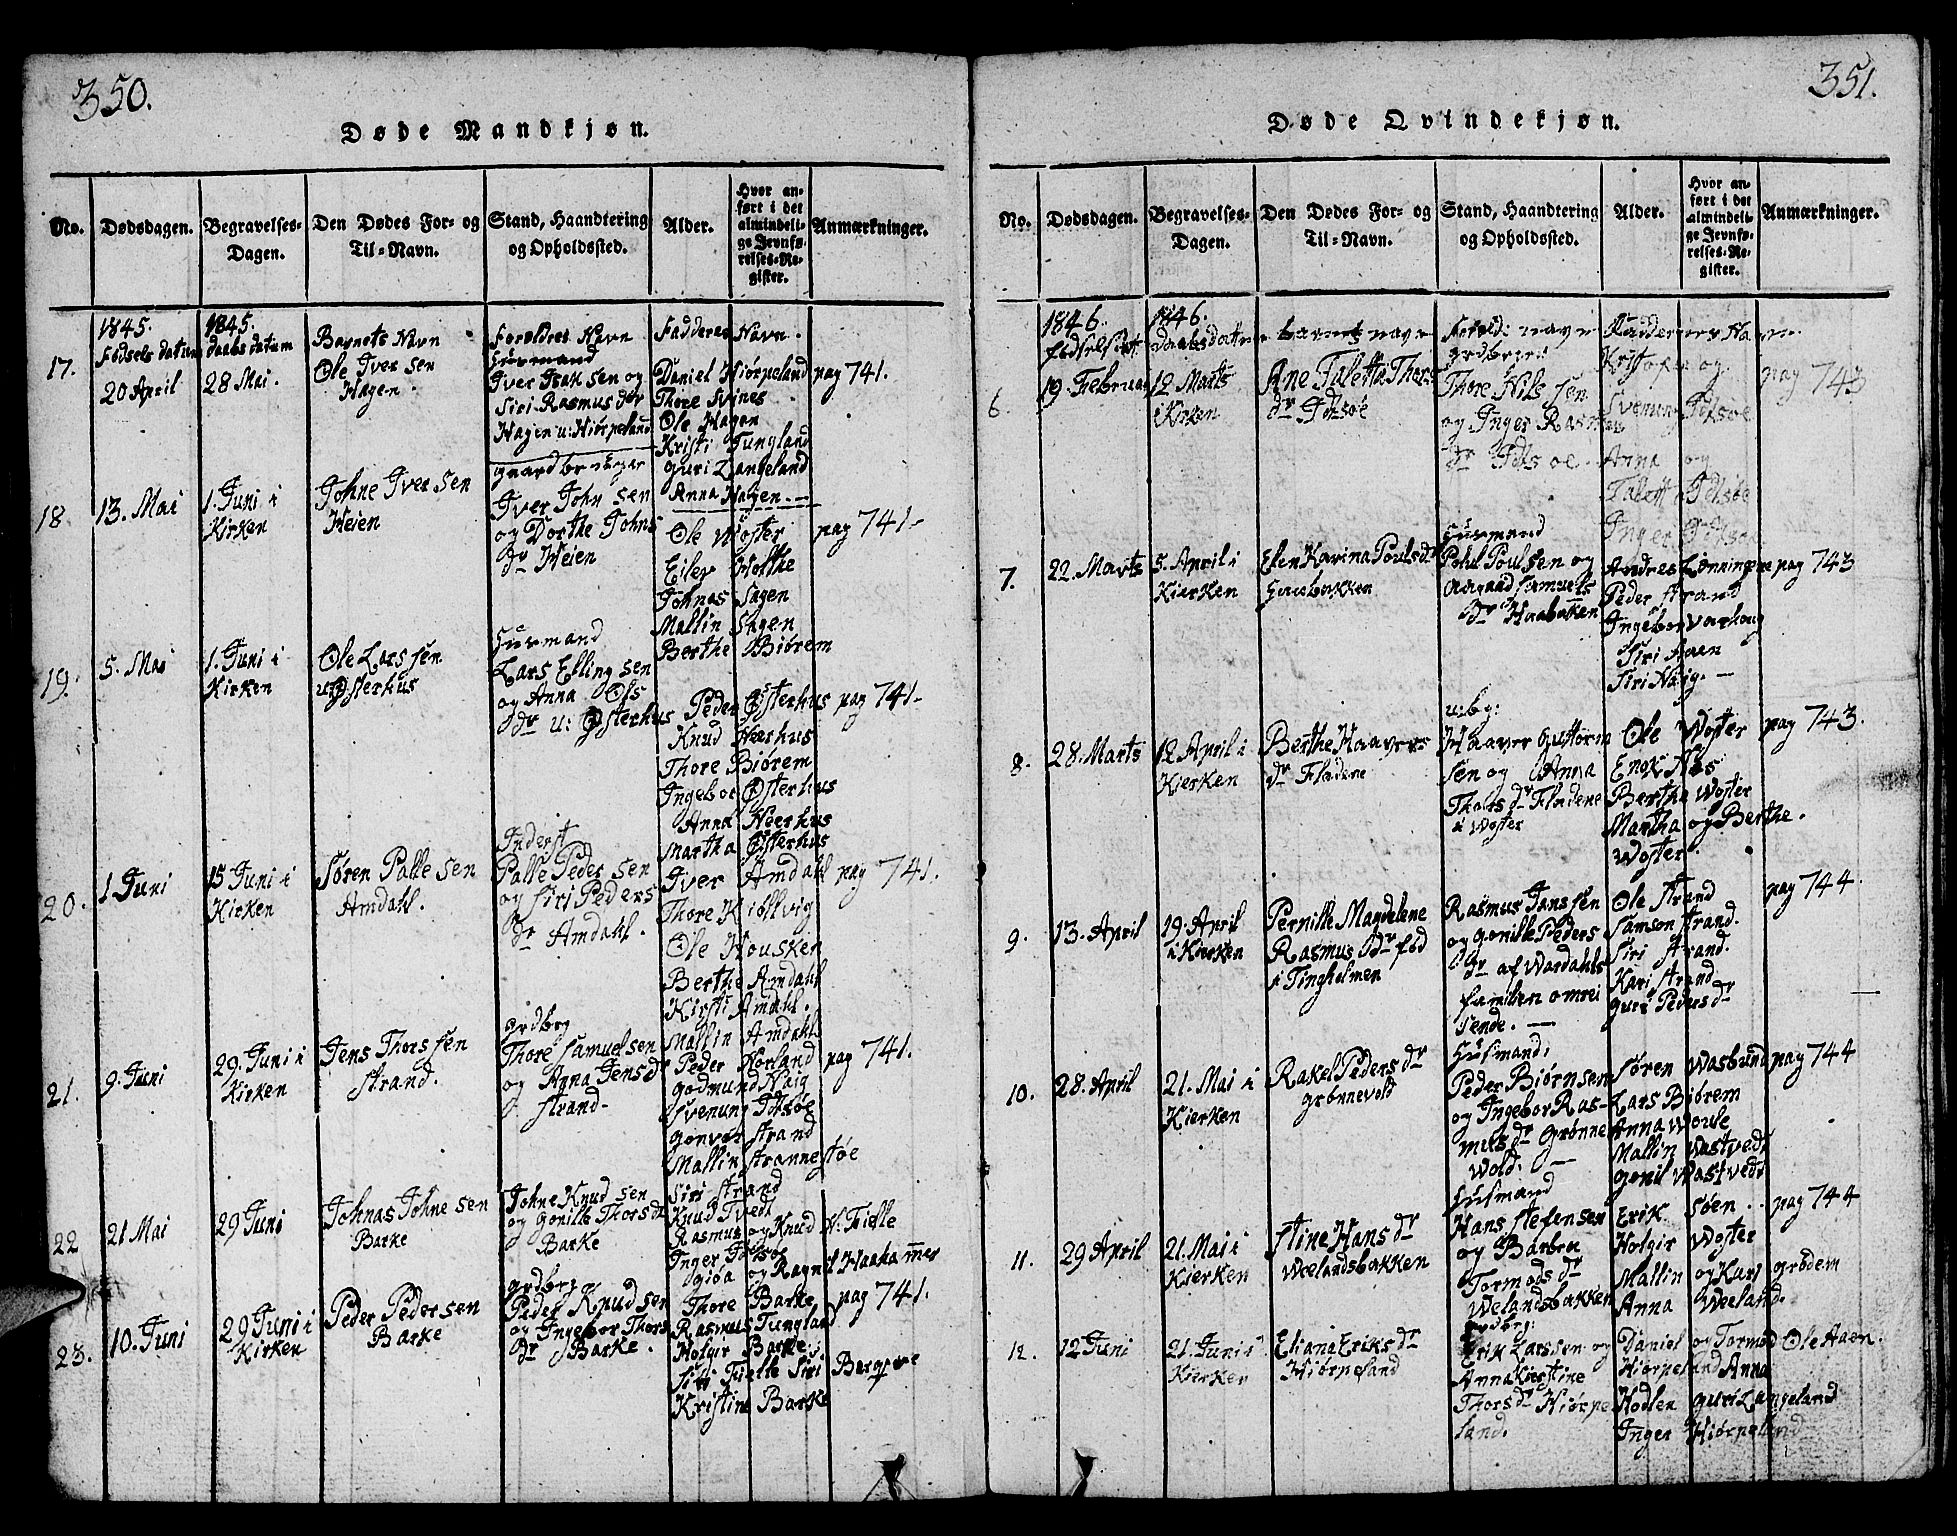 350.
Døde Mandkjøn.
No.
Dødsdagen.
Begravelses-
Dagen.
Den Dødes For- og
Til-Navn.
Stand, Haandtering
og Opholdssted.
Alder.
Hvor an-
ført i det
almindeli-
ge Jevnfø-
relses-Re-
gister.
Anmærkninger.
17.
1845.
Fødsels datum
20 April
1845.
daabs datum
28 Mai.
Barnets Navn
Ole Iver sen
Hagen.
Foreldres Navn
Huusmand
Iver Isak sen og
Siri Rasmus dtr
Hagen u: Hiørpeland
Fadderes Navn.
Daniel Hiørpeland
Thore Svines
Ole Hagen
Kristi Tungland
guri Langeland
Anna Hagen.
pag 741.
18
13. Mai
1. Juni i
Kirken
Johne Iver sen
Heien
gaardbruger
Iver John sen
og Dorthe Johns
dr Heien
Ole Woster
Eiler Holthe
Johnas Sagen
Mallin Sagen
Berthe Biørem
pag 741-
19.
5. Mai
1. Juni i
Kirken
Ole Lars sen
u Østerhus
Huusmand
Lars Elling sen
og Anna Ols
dr u: Østerhus
Peder Østerhus
Knud Neerhus
Thore Biørem
Ingebor Østerhus
Anna Neerhus
Martha Østerhus
pag 741-
20.
1. Juni
15 Juni i
Kirken
Søren Palle sen
Amdahl.
Inderst
Palle Peder sen
og Siri Peders
dr Amdahl.
Iver Amdahl
Thore Kiollvig
Ole Housken
Berthe Amdahl
Kirsti Amdahl.
pag 741.
21.
9. Juni
29. Juni i
Kirken
Jens Thors sen
strand.
grdbrg
Thore Samuelsen
og Anna Jensd
strand-
Mallin Amdahl
Peder Norland
godmund Haig
Svenung Idsøe
gonvor strand
Mallin strannestøe
Siri strand
pag 741.
22
21 Mai
29 Juni
Johnas Johne sen
Barke
Johne Knud sen
og Gonille Thorsdr
Barke
Knud Tvedt
Rasmus og Knud N. Fielle
Inger Idsøe
giøa og Ragnil Haahammer
23.
10. Juni
29 Juni i
Kirken
Peder Peder sen
Barke
grdbrg
Peder Knud sen
og Ingebor Thors
dr Barke.
Thore Barke
Rasmus Tungland
Holgir Barke
Siri Fielle Siri Bergeve
Kristine Barke
pag 741.
351.
Døde Qvindekjøn.
No.
Dødsdagen.
Begravelses-
Dagen.
Den Dødes For- og
Til-Navn.
Stand, Haandtering
og Opholdssted.
Alder.
Hvor an-
ført i det
almindeli-
ge Jevnfø-
relses-Re-
gister.
Anmærkninger.
6.
1846.
fødselsdat
19. Februar
1846.
Daabsdat
12 Marts
i Kirken
barnets navn
Ane Taletta Thors
dr Idsøe
Foreld: navn
grdbrger:
Thore Nils sen
og Inger Rasmus
dr Idsøe.
Faddernes Navn
Kristofer og
Svenung Idsøe
Anna og
Talett Idsøe
Inger Idsøe
pag 743
7.
22. Marts
5. April i
Kierken
Elen Karina Poulsdr
Haabakken
Huusmand
Poul Poulsen og
Aagaad Samuels
dr Haabakken
Andres Lønningen
Peder strand
Ingebor Varhoug
Siri Aaen
Siri Haig.
pag 743
8.
28. Marts
12 April i
Kierken
Berthe Haavers
dr Fladene
u:bg:
Haaver Guttorm
sen og Anna
Thors dr Fladene
i Woster
Ole Woster
Enok Nes
Bertha Woster
Martha og Berthe.
Woster.
pag 743.
9.
13. April
19. April
i Kierken
Pernille Magdelene
Rasmus dr fød
i Tingholmen
Rasmus Jans sen
og gonille Peders
dr af Wardahls
familien omrei
sende.
Ole strand
Samson strand.
Siri strand.
Kari strand
guri Peders dr
pag 744
10.
28. April
21. Mai i
Kierken
Rakel Peders dr
grønnevold
Husmand,
Peder Biørnsen
og Ingebor Ras-
mus dr Grønne
Wold.
Søren Wasbund
Lars Biørem
Anna Woule
Mallin Wastvedt
gonil Wastvedt
pag 744
11.
29 April
21. Mai i
Kierken
Stine Hans dr
Weelandsbakken
Husmand
Hans Stefensen
og Barbru
Tormods dr
Welandsbakken
Erik Søen
Holgir Woster
Mallin og Kari grødem
Anna Weeland.
pag 744
12.
12 Juni
21. Juni i
Kierken
Eliana Eriks dr
Hiørpeland
grdbrg:
Erik Larssen og
Anna Kirstine
Thors dr Hiørpe
land.
Daniel og Tormod Ole Aaen.
Hiørpeland Anna
Hodlen guri Langeland
Inger Hiørpeland